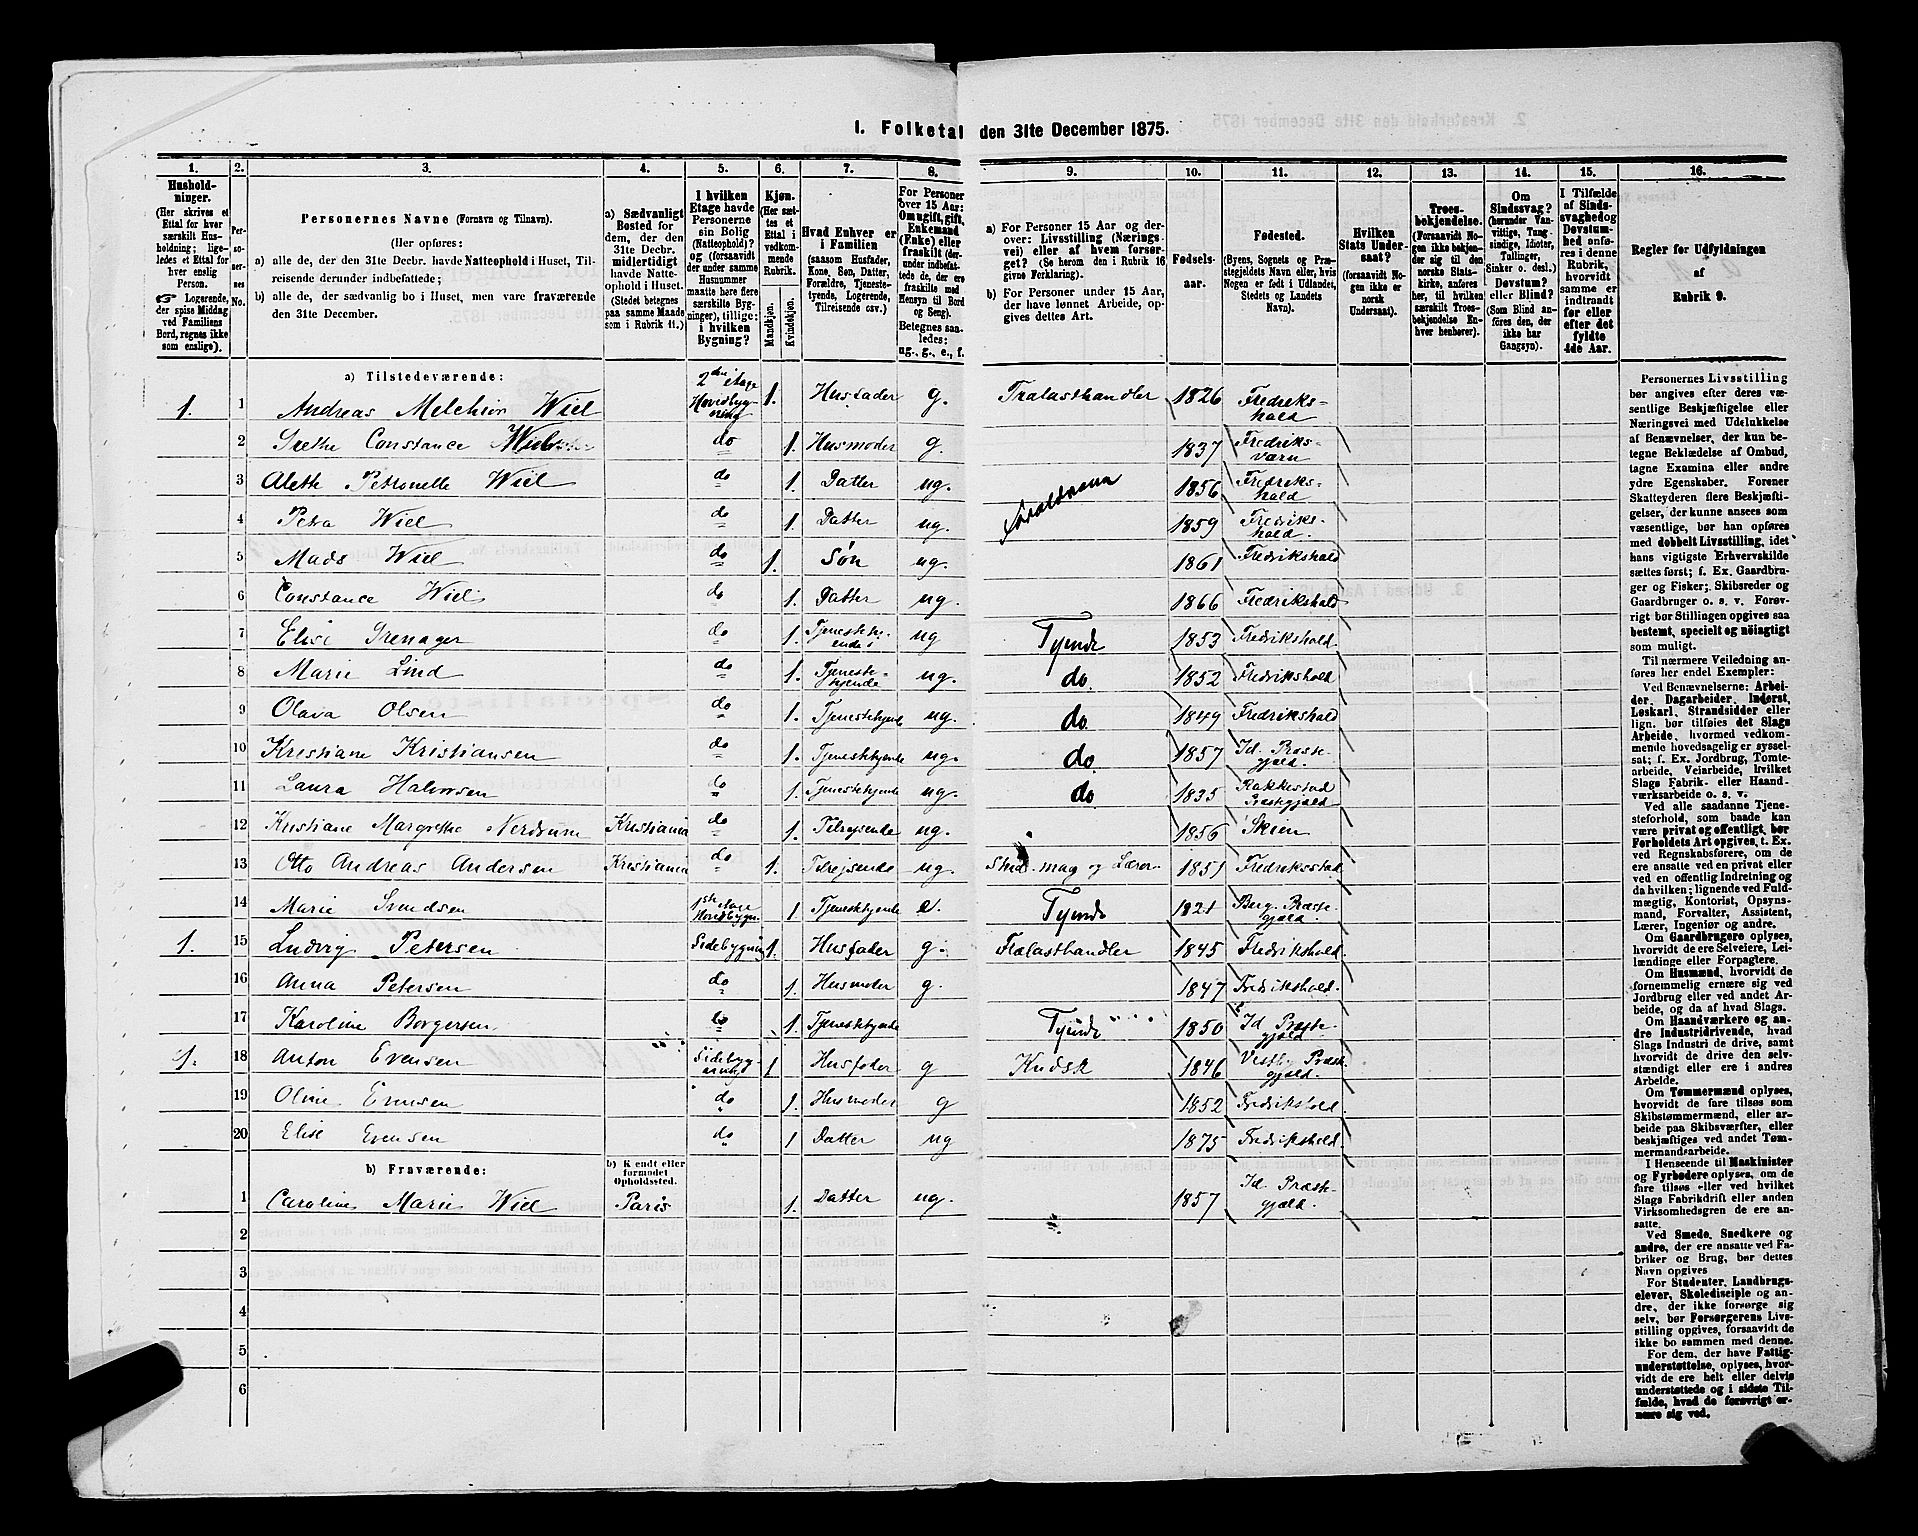 I. Folketal den 31te December 1875.
1. 2. 3. 4. 5. 6. 7. 8. 9. 10. 11. 12. 13. 14. 15. 16.
Husholdninger.
(Her skrives et
Ettal for hver
særskilt Husholdning;
ligeledes et Ettal for
hver enslig
Person.
Logerende,
der spise Middag
ved Familiens
Bord, regnes ikke
som enslige).
Personernes No.
Personernes Navne (Fornavn og Tilnavn).
(Her opføres:
a) alle de, der den 31te Decbr. havde Natteophold i Huset, Tilreisende derunder indbefattede;
b) alle de, der sædvanlig bo i Huset, men vare fraværende
den 31te December.
a) Sædvanligt
Bosted for
dem, der den
31te Decbr.
midlertidigt
havde Natteophold i Huset.
(Stedet betegnes
paa samme Maade
som i Rubrik 11.)
I hvilken
Etage havde
Personerne
sin Bolig
(Natteophold)?
og (forsaavidt
der under samme
Husnummer
maatte høre flere
særskilte Bygninger), tillige:
i hvilken
Bygning?
Kjøn.
(Her sættes et
Ettal i
vedkommende
Rubrik.
Mandkjøn.
Kvindekjøn.
Hvad Enhver er
i Familien
(saasom Husfader,
Kone, Søn, Datter,
Forældre, Tjenestetyende, Logerende,
Tilreisende osv.)
For Personer
over 15 Aar:
Om ugift, gift,
Enkemand
(Enke) eller
fraskilt (derunder indbefattede de, der ere
fraskilte med
Hensyn til Bord
og Seng).
Betegnes saaledes:
ug., g., e., f.
a) For Personer 15 Aar og derover: Livsstilling (Næringsvei) eller af hvem forsørget? (Se herom den i Rubrik 16
givne Forklaring).
b) For Personer under 15 Aar,
der have lønnet Arbeide, opgives dettes Art.
Fødselsaar.
Fødested.
(Byens, Sognets og Præstegjeldets Navn eller, hvis
Nogen er født i Udlandet,
Stedets og Landets
Navn).
Hvilken
Stats Undersaat?
(forsaavidt Nogen ikke er
norsk
Undersaat).
Troesbekjendelse.
(Forsaavidt Nogen ikke bekjender sig til den
norske Statskirke, anføres
her, til hvilken
særskilt Troesbekjendelse Enhver henhører).
Om
Sindssvag?
(herunder Vanvittige, Tungsindige, Idioter,
Tullinger,
Sinker o. desl.)
Døvstum?
eller Blind?
(Som Blind anføres den, der
ikke har
Gangsyn).
I Tilfælde
af Sindssvaghed og
Døvstumhed anføres i denne
Rubrik,
hvorvidt
samme er
indtraadt
før eller
efter det
fyldte
4de Aar.
Regler for Udfyldningen
af
Rubrik 9.
a) Tilstedeværende:
1. 1 Andreas Melchior Wiel 2den etage Hovedbygning 1. Husfader g. Trælasthandler 1826 Fredrikshald
2 Grethe Constance Wiel do 1. Husmoder g. 1837 Fredriksværn
3 Alette Petronelle Wiel do 1. Datter ug. 1856 Fredrikshald
4 Petra Wiel do 1. Datter ug. 1859 Fredrikshald.
5 Mads Wiel do 1. Søn ug. 1861 Fredrikshald
6 Constance Wiel do 1. Datter ug. 1866 Fredrikshald
7 Elise Grenager do 1. Tjenestetyende ug 1853 Fredrikshald
8 Marie Lind do 1. Tjenestetyende ug. do. 1852 Fredrikshald
9 Olava Olsen do 1. Tjenestetyende ug. do 1849 Fredrikshald
10 Kristiane Kristiansen do 1. Tjenestetyende ug. do 1857 Id. Præstegjeld.
11 Laura Halvorsen do 1. Tjenestetyende ug. do 1835 Rakkestad Præstegjeld
12 Kristiane Margrethe Nerdrum Kristiania do 1. Tilrejsende ug. 1856 Skien
13 Otto Andreas Andersen Kristiania do 1. Tilrejsende ug. Stud. mag og Lærer 1851 Fredriksstad
14 Marie Svendsen 1ste etage Hovedbygn. 1 Tjenestetyende e. 1821 Berg. Præstegjeld.
1. 15 Ludvig Petersen Sidebygning 1. Husfader g. Trælasthandler 1845 Fredrikshald.
16 Anna Petersen do 1. Husmoder g. 1847 Fredrikshald.
17 Karoline Borgersen do 1. Tjenestetyende 1850 Id Præstegjeld.
1. 18 Anton Evensen Sidebygning 1 Husfader g Kudsk 1846 Vestby Præstegjeld.
19 Oline Evensen do 1. Husmoder g 1852 Fredrikshald.
20 Elise Evensen do 1 Datter ug 1875 Fredrikshald.
b) Fraværende:
b) Kjendt eller
formodet
Opholdssted.
1 Caroline Marie Wiel Paris 1. Datter ug. 1857 Id. Præstegjeld.
2
3
4
5
6
Personernes Livsstilling
bør angives efter deres væsentlige Beskjæftigelse eller
Næringsvei med Udelukkelse
af Benævnelser, der kun betegne Beklædelse af Ombud,
tagne Examina eller andre
ydre Egenskaber. Forener
Skatteyderen flere Beskjæftigelser, der kunne ansees som
væsentlige, bør han opføres
med dobbelt Livsstilling, idet
hans vigtigste Erhvervskilde
sættes først; f. Ex. Gaardbruger og Fisker; Skibsreder og
Gaardbruger o. s. v. Forøvrigt bør Stillingen opgives saa
bestemt, specielt og nøiagtigt
som muligt.
Til nærmere Veiledning anføres her endel Exempler:
Ved Benævnelserne: Arbeider, Dagarbeider, Inderst,
Løskarl, Strandsidder eller
lign. bør tilføies det Slags
Arbeide, hvormed vedkommende hovedsagelig er sysselsat; f. Ex. Jordbrug, Tomtearbeide, Veiarbeide, hvilket
Slags Fabrik- eller Haandværksarbeide o. s. v.
Ved alle saadanne Tjenesteforhold, som baade kan
være privat og offentligt, bør
Forholdets Art opgives, f. Ex.
ved Regnskabsførere, om de
ere ansatte ved en privat eller
ved en offentlig Indretning og
da hvilken; lignende ved Fuldmægtig, Kontorist, Opsynsmand, Forvalter, Assistent,
Lærer, Ingeniør og andre.
Om Gaardbrugere oplyses,
hvorvidt de ere Selveiere, Leilændinge eller Forpagtere.
Om Husmænd, hvorvidt de
fornemmelig ernære sig ved
Jordbrug eller ved andet Arbeide, og da af hvad Slags.
Om Haandværkere og andre Industridrivende, hvad
Slags Industri de drive, samt
hvorvidt de drive den selvstændigt eller ere i andres
Arbeide.
Om Tømmermænd oplyses,
hvorvidt de fare tilsøs som
Skibstømmermænd, eller arbeide paa Skibsværfter, eller
beskjæftiges ved andet Tømmermandsarbeide.
I Henseende til Maskinister
og Fyrbødere oplyses, om de
fare tilsøs eller ved hvilket
Slags Fabrikdrift eller anden
Virksomhedsgren de ere ansatte.
Ved Smede, Snedkere og
andre, der ere ansatte ved Fabriker og Brug, bør dettes
Navn opgives
For Studenter, Landbrugselever, Skoledisciple og andre, der ikke forsørge sig
selv, bør Forsørgerens Livsstilling opgives, forsaavidt de
ikke bo sammen med denne.
For dem, der have Fattigunderstøttelse, oplyses, hvorvidt de ere helt eller delvis
understøttede og i sidste Tilfælde, hvad de forøvrigt ernære sig ved.